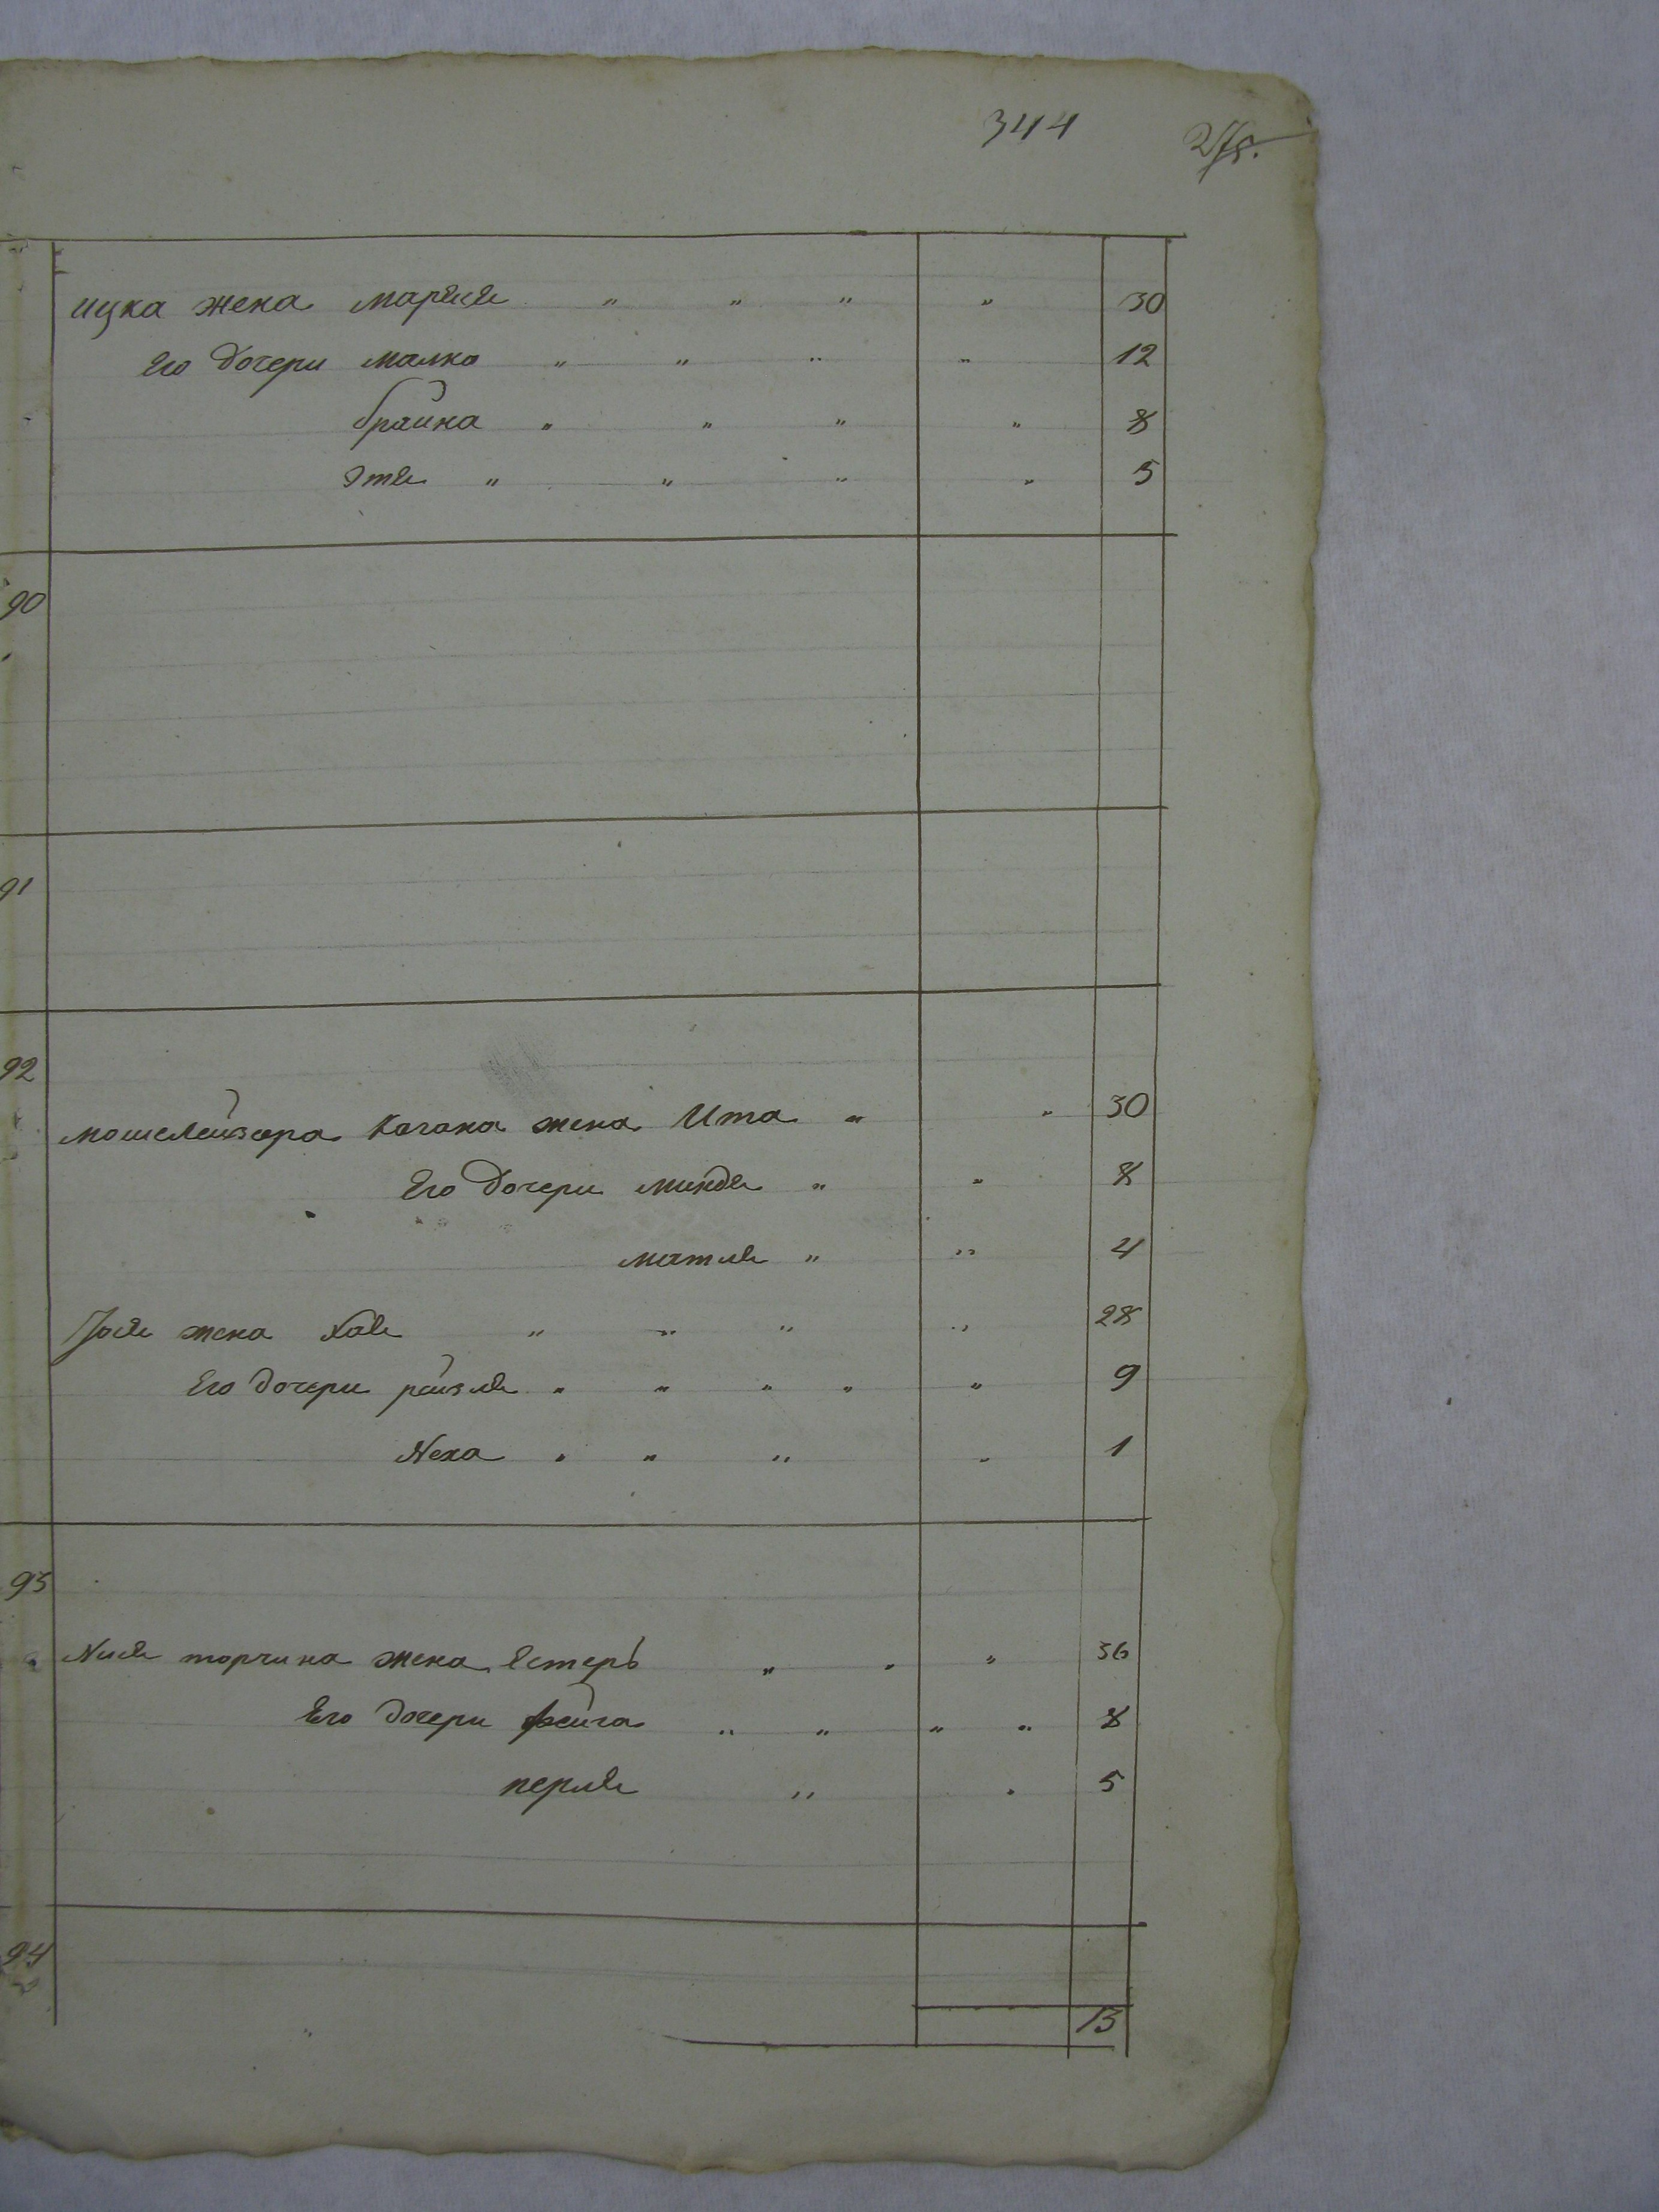 344
Ицка жена Маріям " " " " 30
Его дочери Малка " " " " 12
Брайна " " " " 8
Этя " " " " 5
90
91
92
Мошелейзора Кагана жена Ита " " 30
Его дочери Миндя " " 8
Матля " " 4
Іося жена Хая " " " " 28
Его дочери Рейзля " " " " " 9
Неха " " " " 1
93
Нися Торчина жена Естеръ " " " 36
Его дочери Фейга " " " " 8
Перля " " 5
94
13